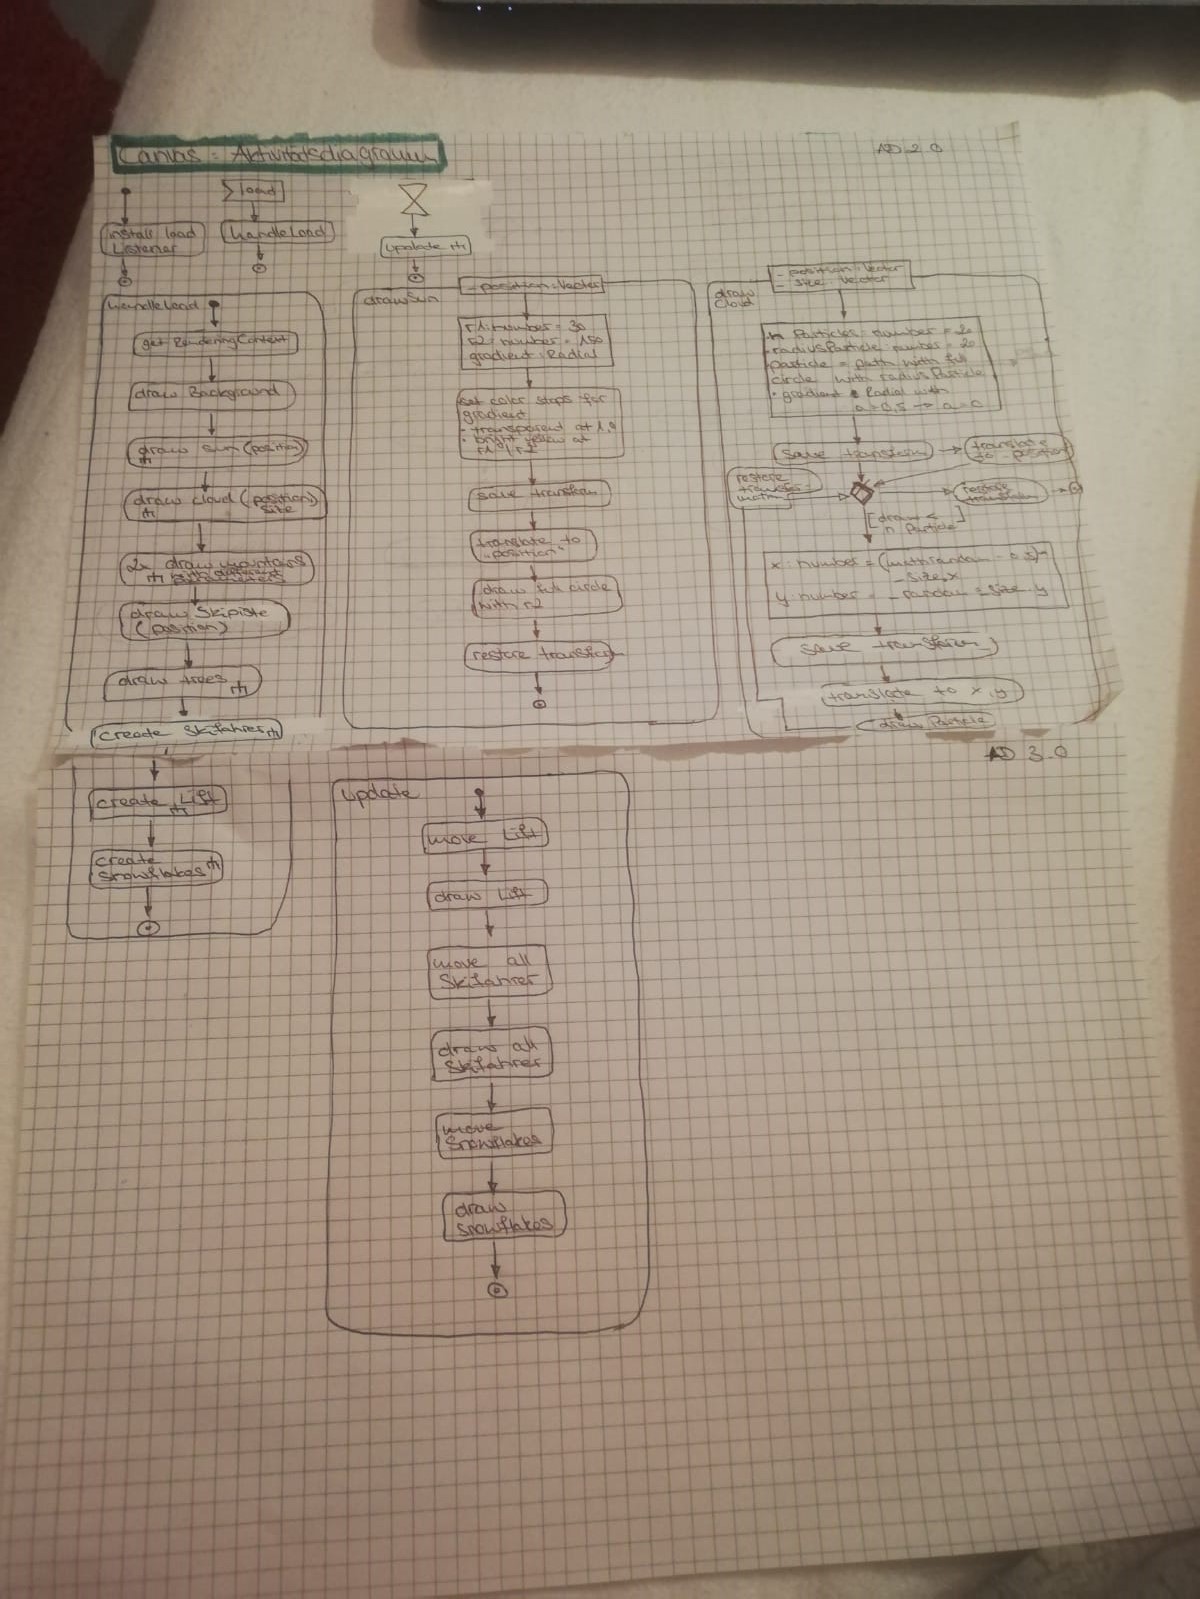 Canvas: Aktivitätsdiagramm
AD 2.0
install load
Listener
load
handleLoad
update
handleLoad
get RenderingContext
draw Background
draw sun (position)
draw cloud (position)
size
2x draw mountains
draw Skipiste
(position)
draw trees
create Skifahrer
create Lift
create
snowflakes
drawSun
- position: Vector
r1: number = 30
r2: number = 150
gradient: Radial
set color stops for
gradient
- transparent at
- bright yellow at
r1/r2
save transform
translate to
"position"
draw full circle
with r2
restore transform
draw
Cloud
- position: Vector
- size: Vector
n Particles: number = 20
- radiusParticle: number = 20
particle = path with full
circle with radiusParticle
- gradient = Radial with
a=0,5 → a=0
save transform
translate
to position
restore
transform
restore
transform
[draw <
n Particle]
x: number = (math random - 0.5)*
size.x
y: number = - random * size.y
save transform
translate to x,y
draw Particle
AD 3.0
update
move Lift
draw Lift
move all
Skifahrer
draw all
Skifahrer
move
snowflakes
draw
snowflakes